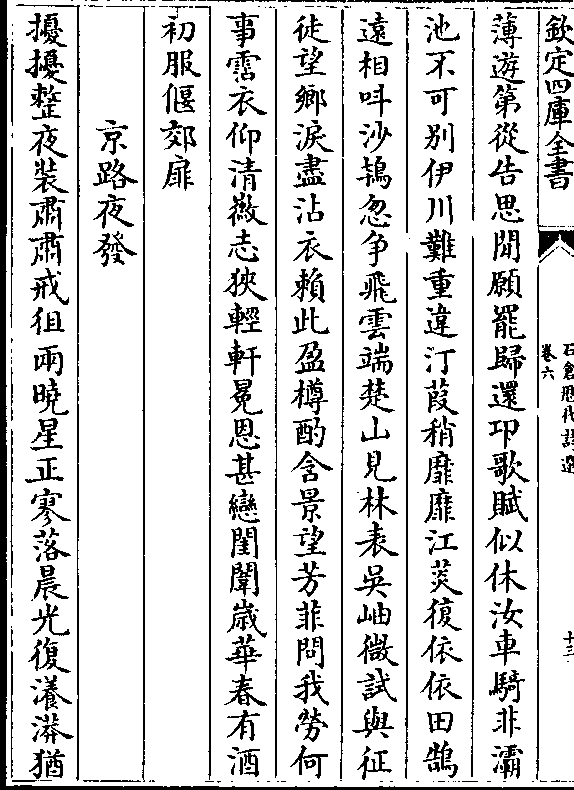 欽定四庫全書
石倉歷代詩選
卷六
十三
薄遊第從告思閒願罷歸還卭歌賦似休汝車騎非灞
池不可別伊川難重違汀葭稍靡靡江菼復依依田鵠
遠相呌沙鴇忽争飛雲端楚山見林表吳岫微試與征
徒望鄉淚盡沾衣賴此盈樽酌含景望芳菲問我勞何
事霑衣仰清徽志狹輕軒冕恩甚戀閨闈歳華春有酒
初服偃郊扉
京路夜發
擾擾整夜裝肅肅戒徂兩曉星正寥落晨光復瀁漭猶